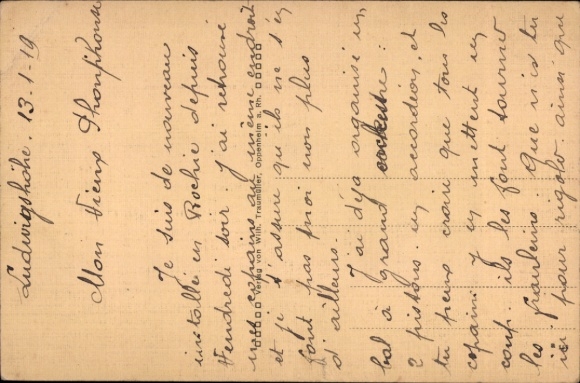 Ludwigshöhe. 13.1.19
Mon Vieux Phonphonse
Je suis de nouveau
installé en Bochie depuis
Vendredi soir. J'ai retrouvé
mes copains au même endroit
et je t'assure qu'ils ne s'en
font pas moi non plus
d'ailleurs.
J'ai déjà organisé un
bal à grand orchestre:
2 pistons, un accordéon, et
tu peux croire que tous les
copains y en mettent un
coup. ils les font tourner
les frauleins. Que n'es tu
ici pour rigoler ainsi que
Verlag von Wilh. Traumüller, Oppenheim a. Rh.